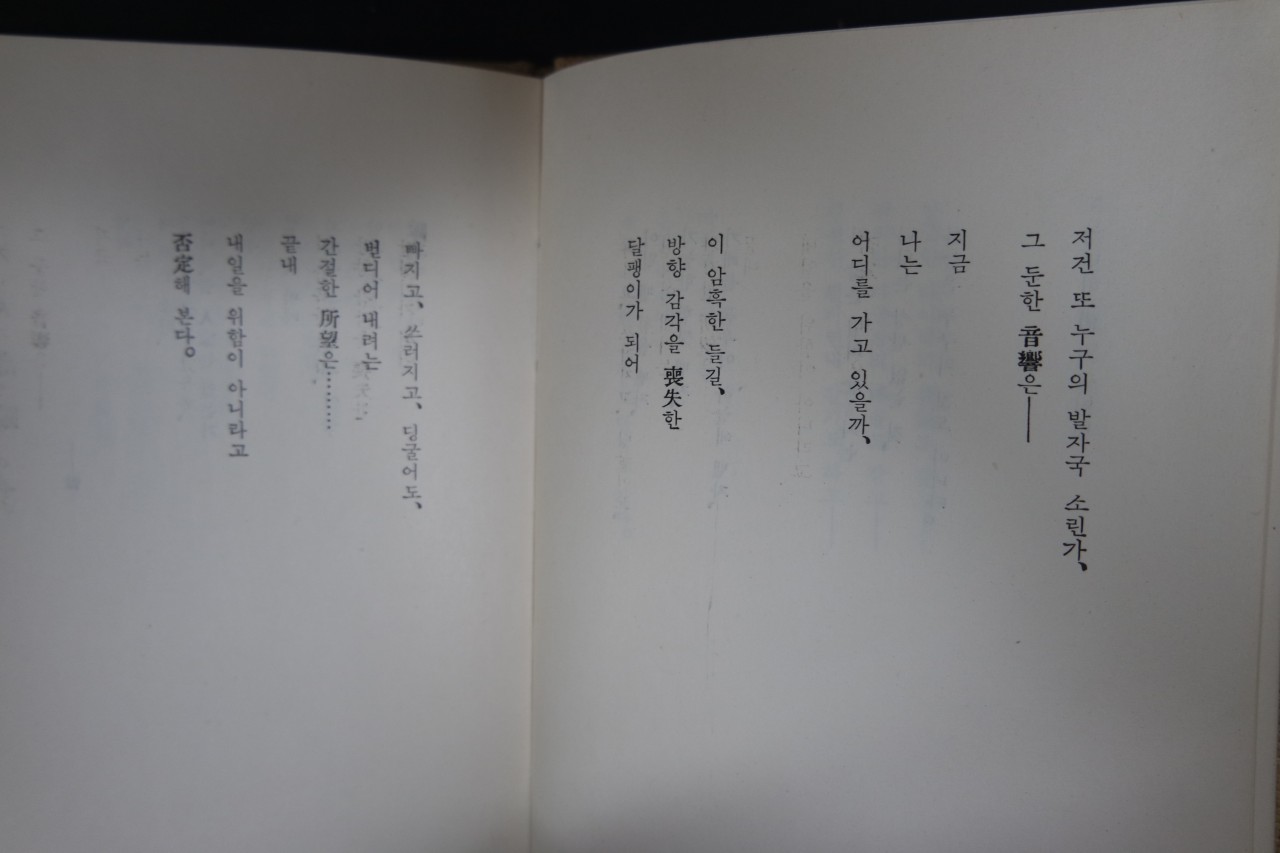 저건 또 누구의 발자국 소린가、
그 둔한 音響은──
지금
나는
어디를 가고 있을까、
이 암흑한 들길、
방향 감각을 喪失한
달팽이가 되어
빠지고、쓰러지고、딩굴어도、
번디어 내려는
간절한 所望은…………
끝내
내일을 위함이 아니라고
否定해 본다。